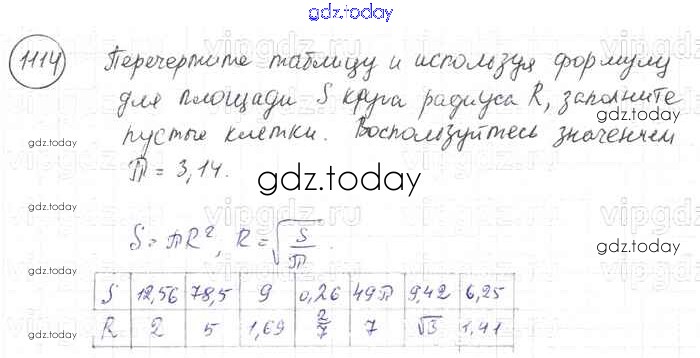 gdz.today
1114 Перечертите таблицу и используя формулу
для площади S круга радиуса R, заполните
пустые клетки. Воспользуйтесь значением
π = 3,14.
gdz.today
gdz.today
gdz.today
gdz.today
gdz.today
S = πR², R = √(S/π).
gdz.today
gdz.today
S 12,56 78,5 9 0,26 49π 9,42 6,25
R 2 5 1,69 2/7 7 √3 1,41
gdz.today
gdz.today